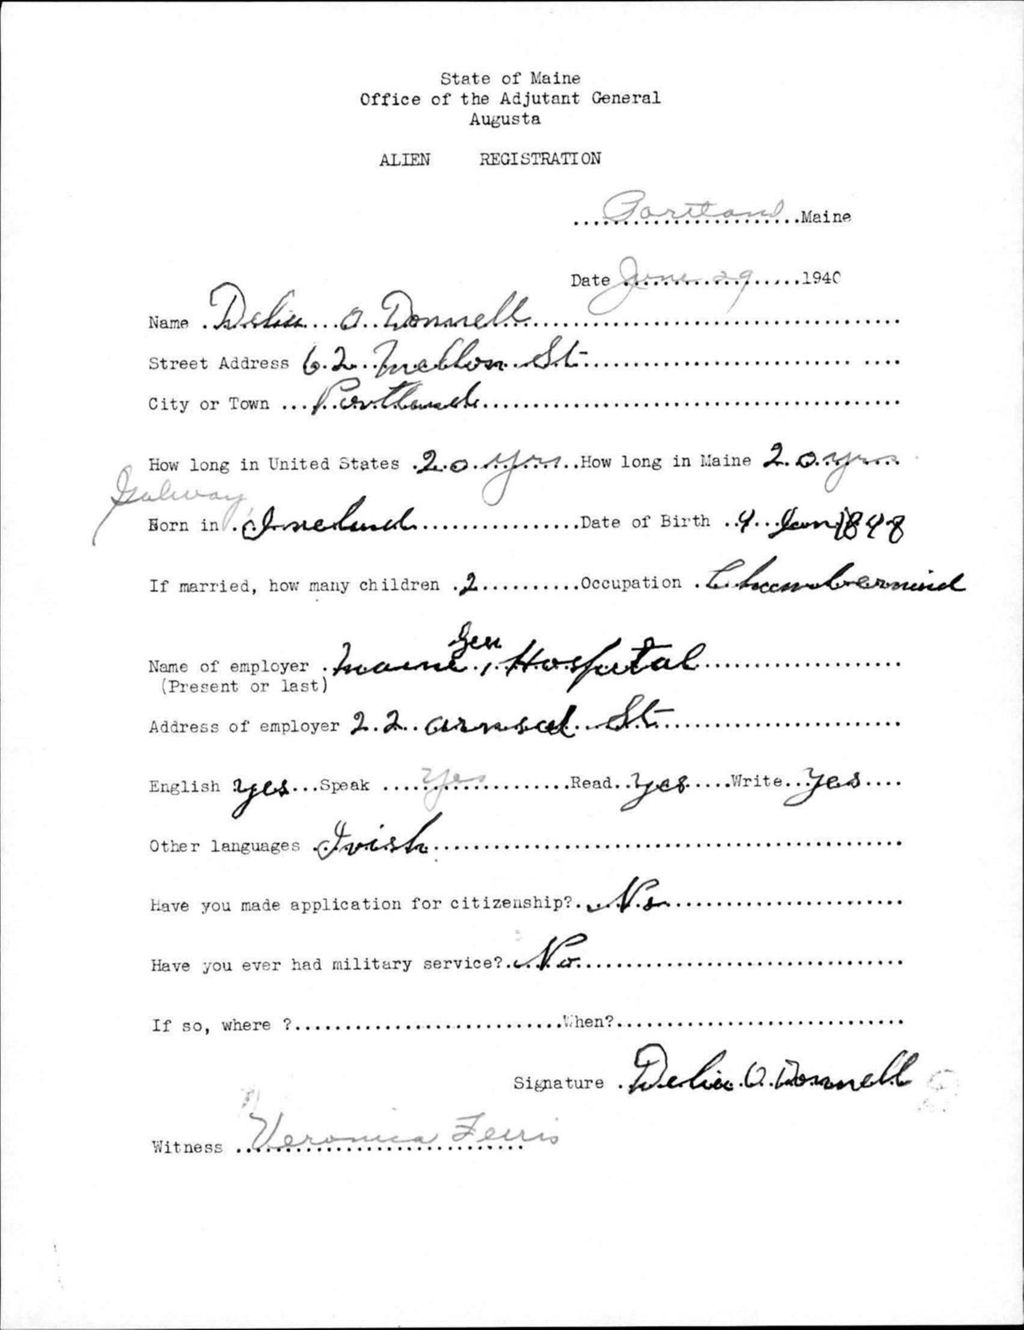 State of Maine
Office of the Adjutant General
Augusta
ALIEN REGISTRATION
Portland Maine
Date June 29 1940
Name Delia O Donnell
Street Address 62 Mellon St
City or Town Portland
How long in United States 20 yrs How long in Maine 20 yrs
Galway
Born in Ireland Date of Birth 9 Jan 1898
If married, how many children 2 Occupation Chambermaid
Gen
Name of employer Maine, Hospital
(Present or last)
Address of employer 22 St
English yes Speak Yes Read yes Write yes
Other languages Irish
Have you made application for citizenship? No
Have you ever had military service? No
If so, where ? When?
Signature Delia O. Donnell
Witness Veronica Ferris